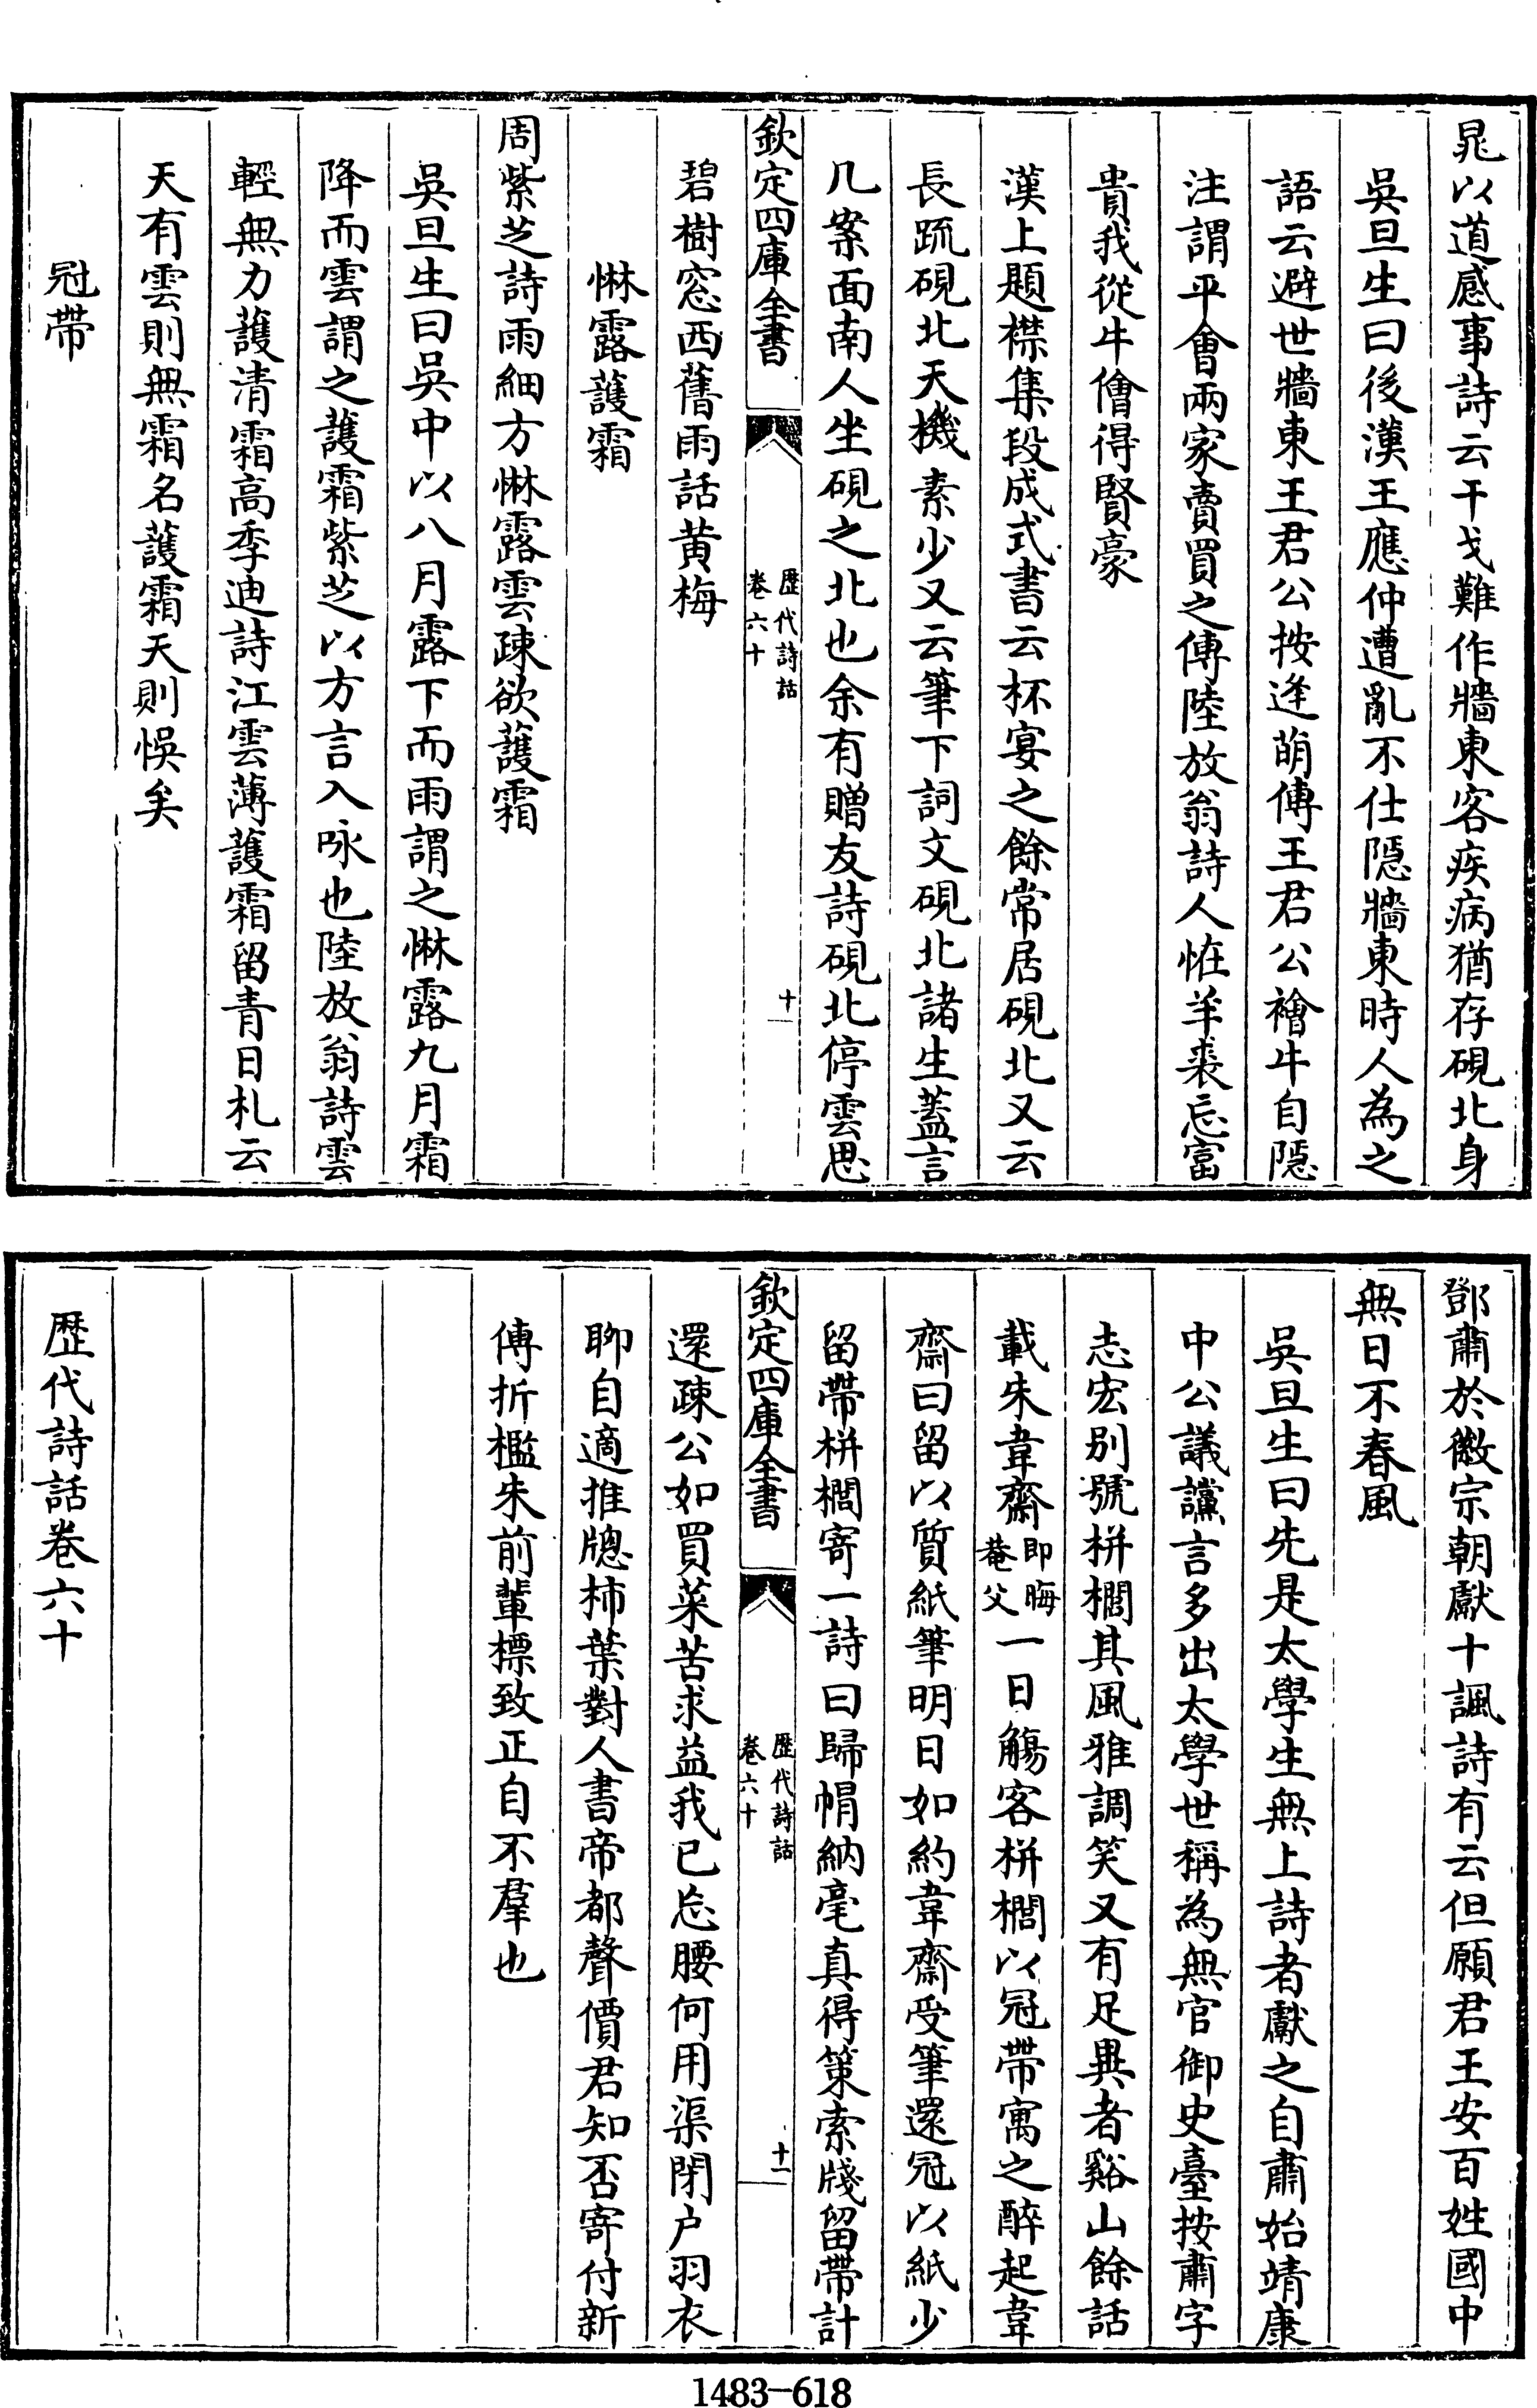 晁以道感事詩云干戈難作牆東客疾病猶存硯北身
吳旦生曰後漢王應仲遭亂不仕隱牆東時人為之
語云避世牆東王君公按逢萌傳王君公襘牛自隱
注謂平會兩家賣買之傳陸放翁詩人恠羊裘忘富
貴我從牛儈得賢豪
漢上題襟集段成式書云杯宴之餘常居硯北又云
長䟽硯北天機素少又云筆下詞文硯北諸生蓋言
几案面南人坐硯之北也余有贈友詩硯北停雲思
欽定四庫全書
歴代詩話
卷六十
十
碧樹窓西舊雨話黄梅
惏露䕶霜
周紫芝詩雨細方惏露雲疎欲䕶霜
吳旦生曰吳中以八月露下而雨謂之惏露九月霜
降而雲謂之䕶霜紫芝以方言入咏也陸放翁詩雲
輕無力䕶清霜高季迪詩江雲薄䕶霜留青日札云
天有雲則無霜名䕶霜天則悞矣
冠帶
鄧肅於徽宗朝獻十諷詩有云但願君王安百姓國中
無日不春風
吳旦生曰先是太學生無上詩者獻之自肅始靖康
中公議讜言多出太學世稱為無官御史臺按肅字
志宏别號栟櫚其風雅調笑又有足異者谿山餘話
載朱韋齋即晦菴父一日觴客栟櫚以冠帶寓之醉起韋
齋曰留以質紙筆明日如約韋齋受筆還冠以紙少
留帶栟櫚寄一詩曰歸帽納毫真得策索牋留帶計
欽定四庫全書
歴代詩話
卷六十
十一
還疎公如買菜苦求益我已忘腰何用渠閉户羽衣
聊自適推牕柿葉對人書帝都聲價君知否寄付新
傳折檻朱前輩標致正自不羣也
歴代詩話卷六十
1483-618